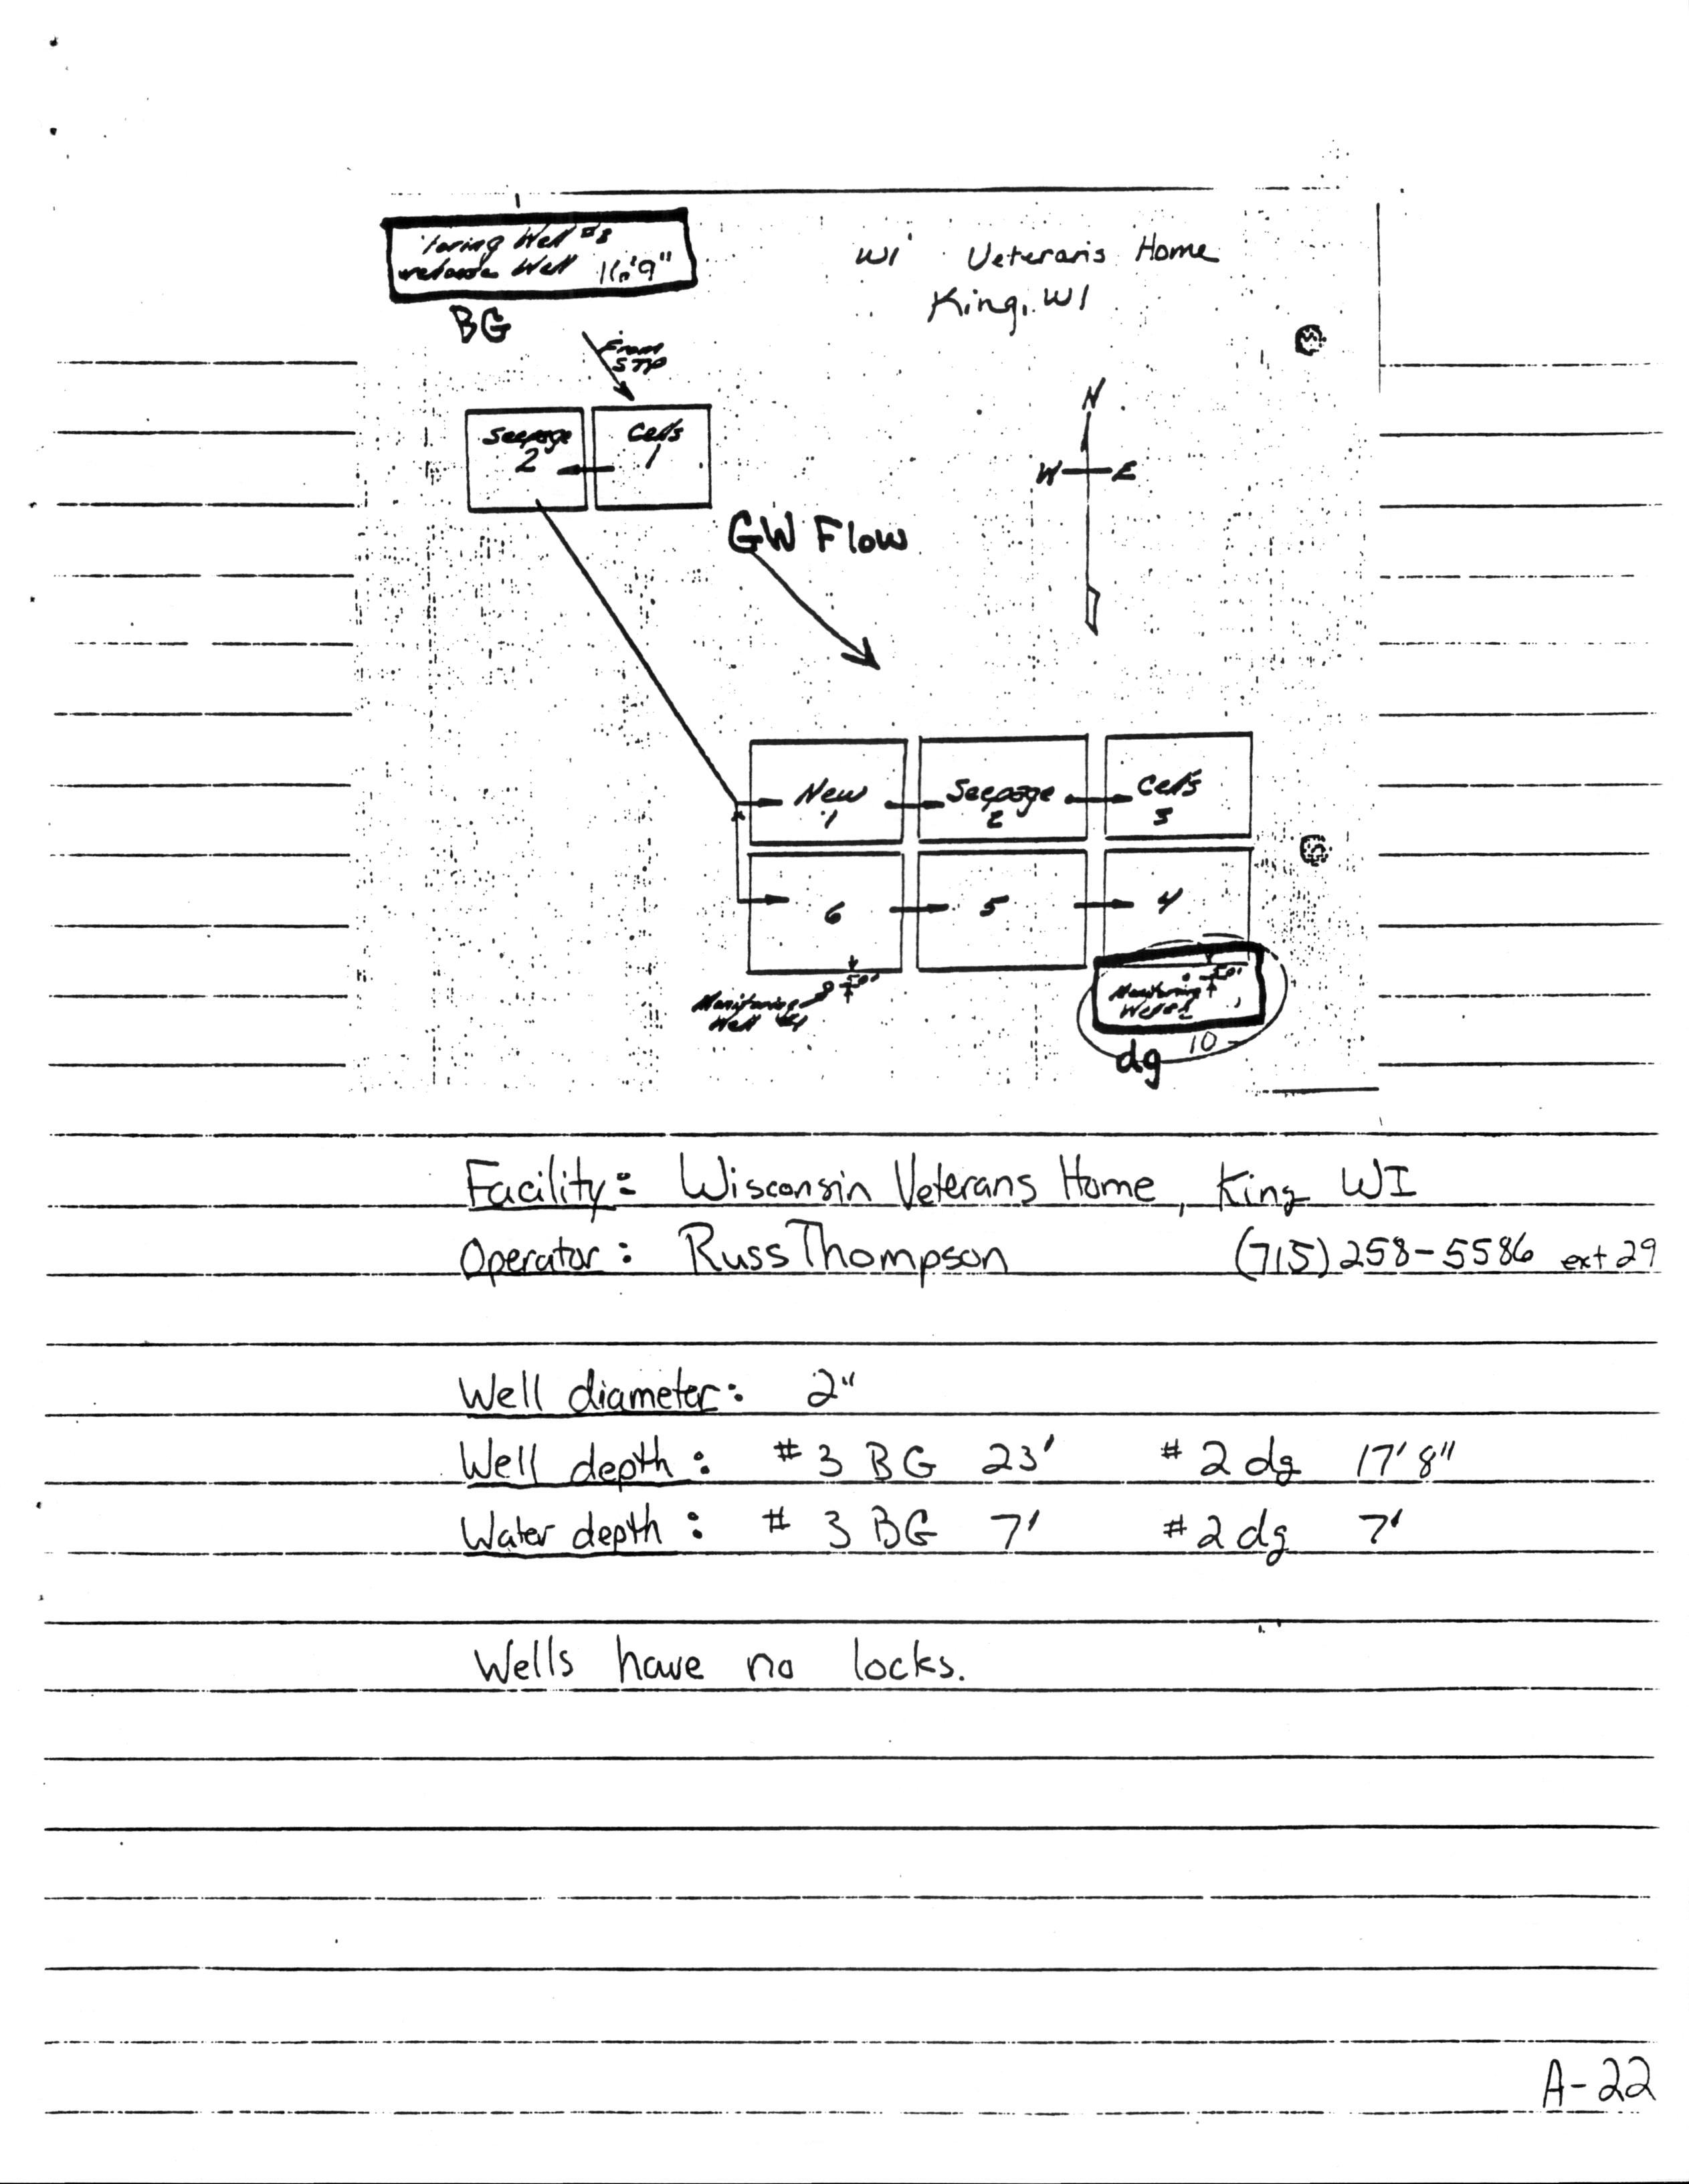 toring Well #3
Well
BG
WI Veterans Home
King, WI
From
STP
Seepage
2
Cells
1
N
W E
GW Flow
New
1
Seepage
2
Cells
3
6
5
4
50'
Monitoring
Well
50'
Monitoring
Well #2
10
dg
Facility: Wisconsin Veterans Home, King WI
Operator: Russ Thompson (715) 258-5586 ext 29
Well diameter: 2"
Well depth: #3 BG 23' #2 dg 17'8"
Water depth: #3 BG 7' #2 dg 7'
Wells have no locks.
A-22